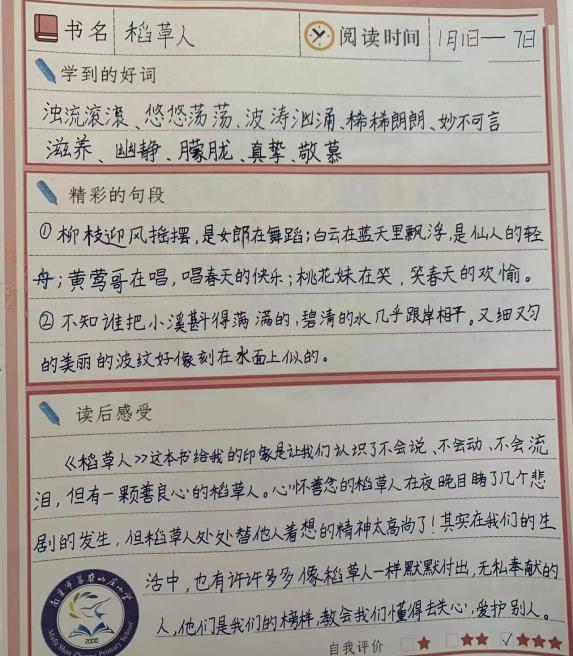 书名 稻草人 阅读时间 1月1日—7日
学到的好词
浊流滚滚、悠悠荡荡、波涛汹涌、稀稀朗朗、妙不可言
滋养、幽静、朦胧、真挚、敬慕
精彩的句段
①柳枝迎风摇摆,是女郎在舞蹈;白云在蓝天里飘浮,是仙人的轻
舟;黄莺哥在唱,唱春天的快乐;桃花妹在笑,笑春天的欢愉。
②不知谁把小溪斟得满满的,碧清的水几乎跟岸相平。又细又匀
的美丽的波纹好像刻在水面上似的。
读后感受
《稻草人》这本书给我的印象是让我们认识了不会说、不会动、不会流
泪,但有一颗善良心的稻草人。心怀善念的稻草人在夜晚目睹了几个悲
剧的发生,但稻草人处处替他人着想的精神太高尚了!其实在我们的生
活中,也有许许多多像稻草人一样默默付出,无私奉献的
人,他们是我们的榜样,教会我们懂得去关心,爱护别人。
Primary School
2000
自我评价